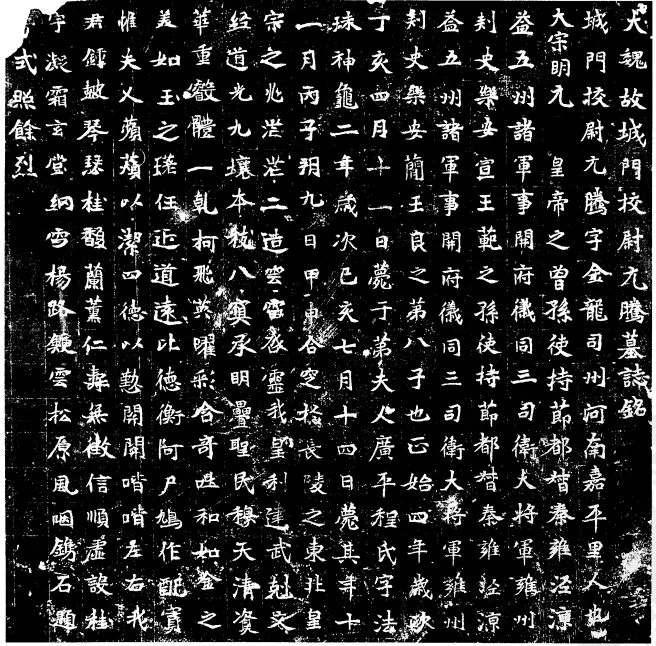 大魏故城門挍尉元騰墓誌銘
城門挍尉元騰字金龍司州河南嘉平里人也
太宗明元　皇帝之曾孫使持節都督秦雍涇涼
益五州諸軍事開府儀同三司衛大將軍雍州
刾史樂安宣王範之孫使持節都督秦雍涇涼
益五州諸軍事開府儀同三司衛大將軍雍州
刾史樂安蕳王良之第八子也正始四年歲次
丁亥四月十一日薨于第夫人廣平程氏字法
珠神龜二年歲次己亥七月十四日薨其年十
一月丙子朔九日甲申合窆於長陵之東北皇
宗之兆茫茫二造雲雷啓靈我皇利建武剋文
經道光九壤本枝八寘承明疊聖民穆天清資
華重皦體一乹柯飛英曜彩含奇咀和如金之
美如玉之瑳任近道遠比德衡阿尸鳩作配實
惟夫乂蘋蘩以潔四德以懃開開喈喈左右我
君鍾皷琴瑟桂馥蘭薰仁壽無徵信順虛設桂
字凝霜玄堂網雪楊路鏁雲松原風咽鐫石題
式照餘烈